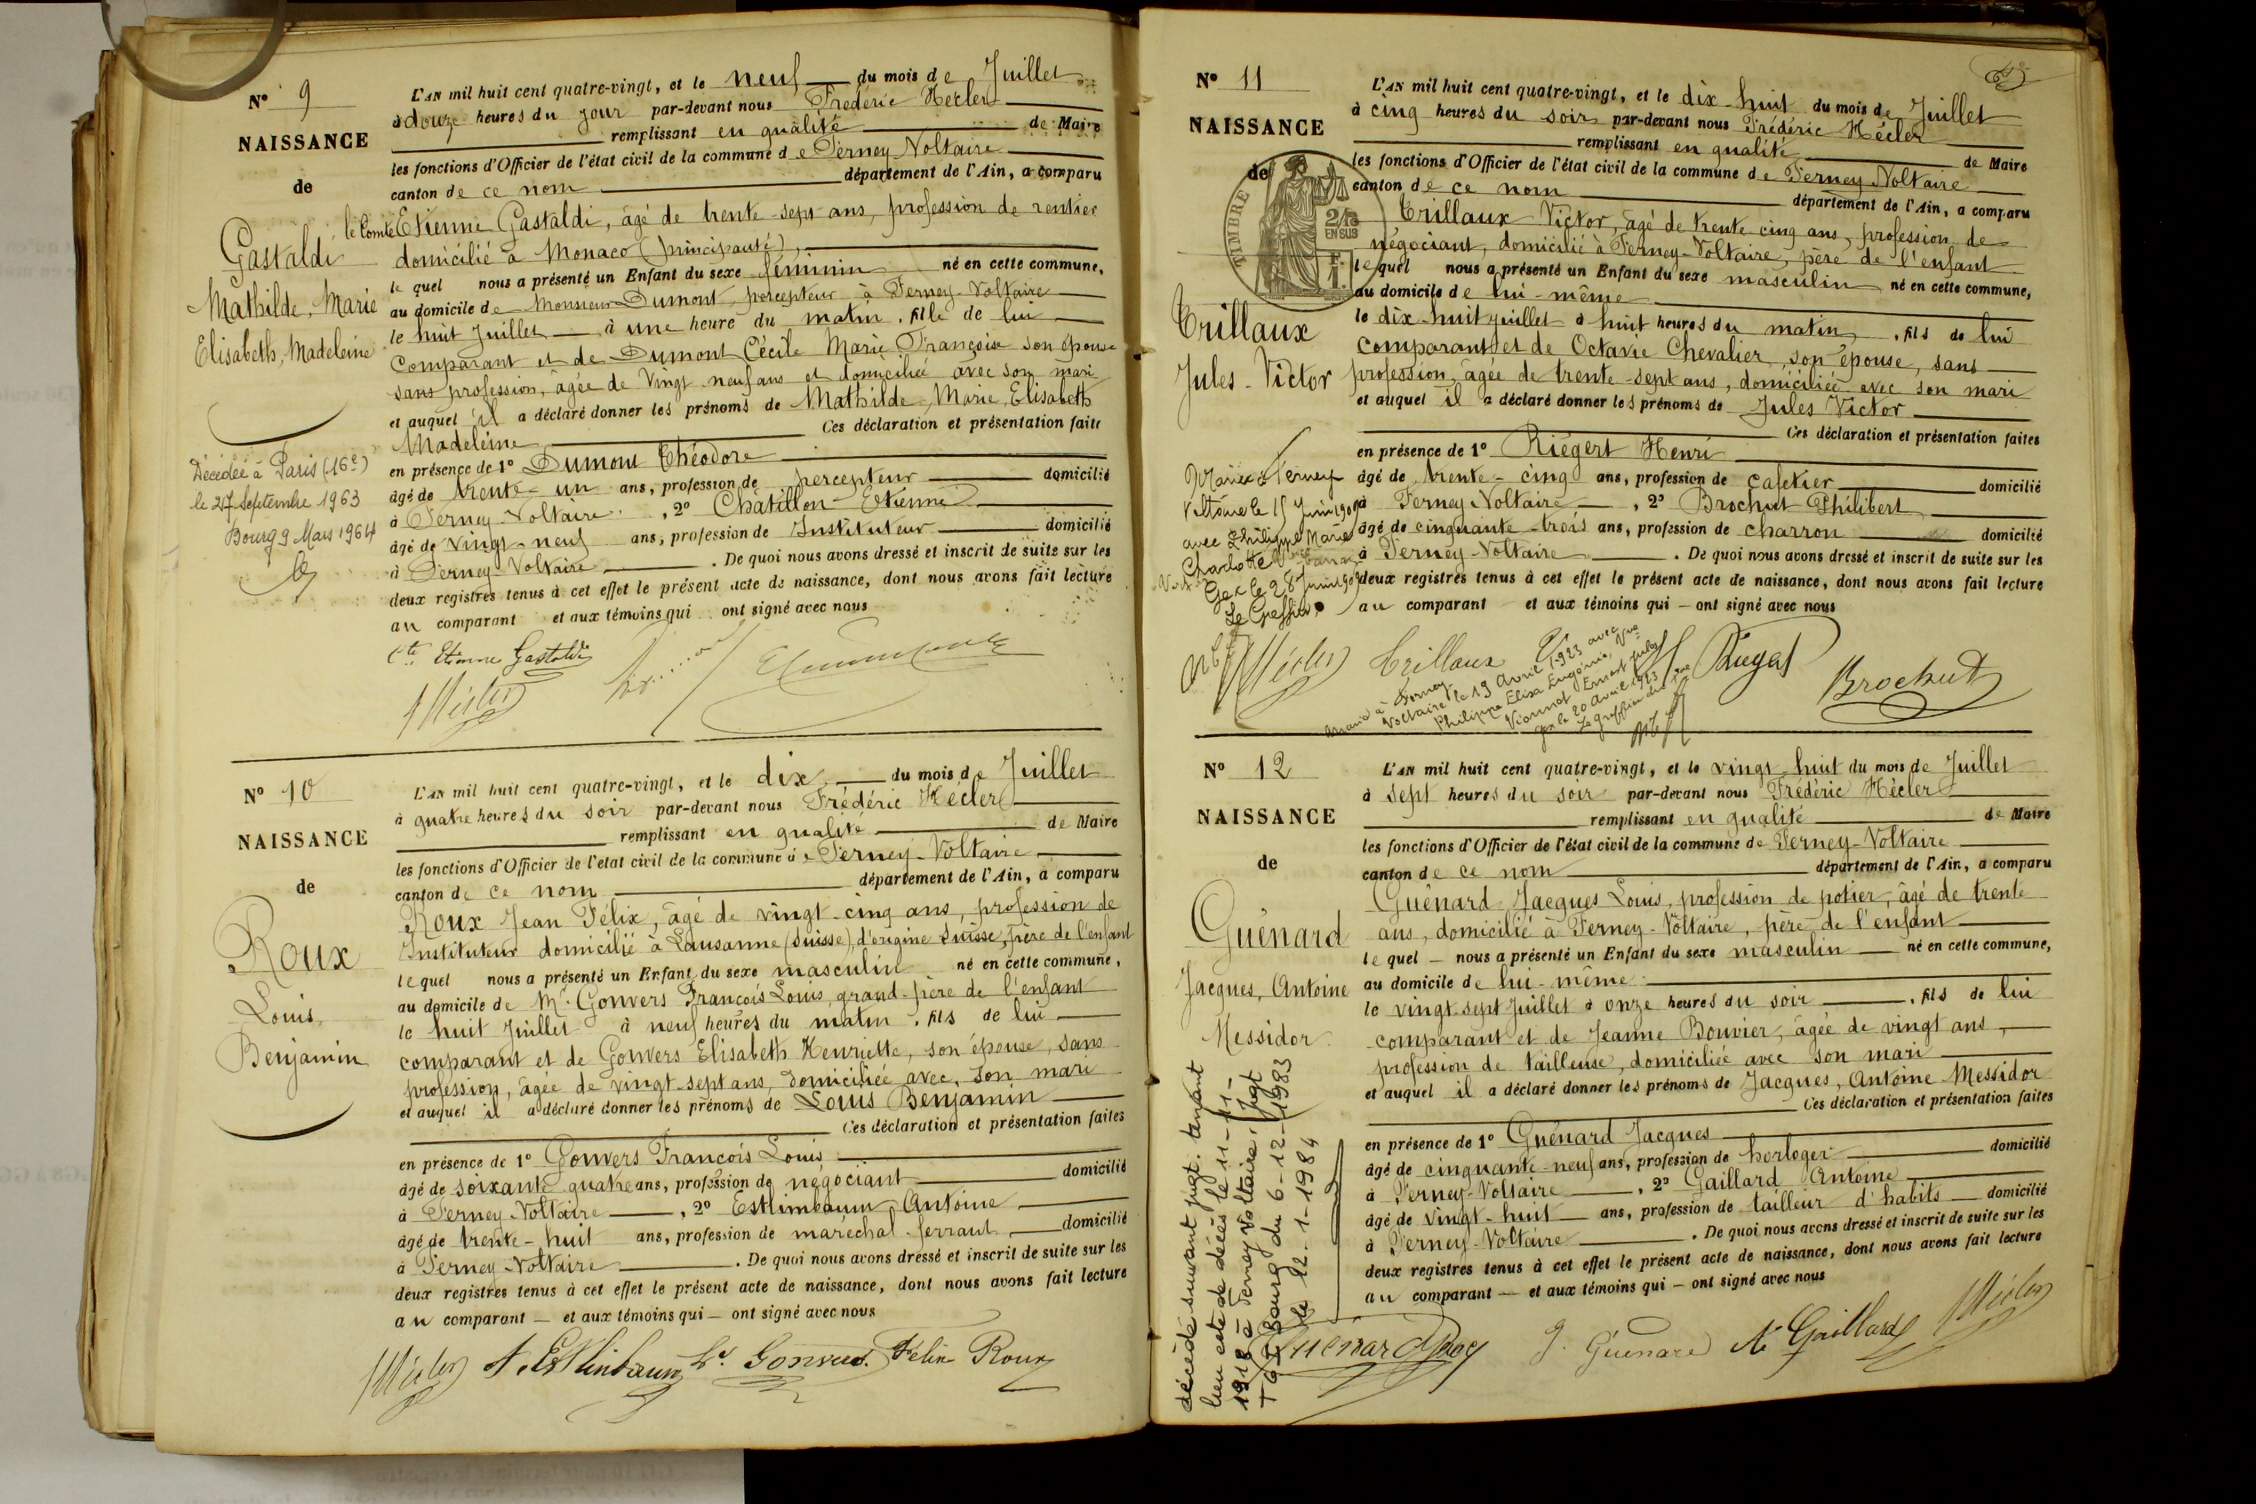 N° 9
NAISSANCE
de
Gastaldi
Mathilde, Marie
Elisabeth, Madeleine
Décédée à Paris (16e)
le 27 Septembre 1963
Bourg 9 Mars 1964
L'AN mil huit cent quatre-vingt, et le neuf du mois de Juillet
à douze heures du jour par-devant nous Frédéric Hécler
remplissant en qualité de Maire
les fonctions d'Officier de l'état civil de la commune de Ferney Voltaire
canton de ce nom département de l'Ain, a comparu
le Comte Etienne Gastaldi, âgé de trente-sept ans, profession de rentier
domicilié à Monaco (principauté),
le quel nous a présenté un Enfant du sexe féminin né en cette commune,
au domicile de Monsieur Dumont, percepteur à Ferney-Voltaire
le huit Juillet à une heure du matin, fille de lui
Comparant et de Dumont Cécile Marie Françoise son épouse
sans profession, âgée de vingt-neuf ans et domiciliée avec son mari
et auquel il a déclaré donner les prénoms de Mathilde, Marie, Elisabeth
Madeleine Ces déclaration et présentation faite
en présence de 1° Dumont Théodore
âgé de trente-un ans, profession de percepteur domicilié
à Ferney-Voltaire, 2° Châtillon Etienne
âgé de vingt-neuf ans, profession de Instituteur domicilié
à Ferney-Voltaire. De quoi nous avons dressé et inscrit de suite sur les
deux registres tenus à cet effet le présent acte de naissance, dont nous avons fait lecture
au comparant et aux témoins qui ont signé avec nous
Cte Etienne Gastaldi
Hécler
N° 10
NAISSANCE
de
Roux
Louis,
Benjamin
L'AN mil huit cent quatre-vingt, et le dix du mois de Juillet
à quatre heures du soir par-devant nous Frédéric Hécler
remplissant en qualité de Maire
les fonctions d'Officier de l'état civil de la commune de Ferney-Voltaire
canton de ce nom département de l'Ain, a comparu
Roux Jean Félix, âgé de vingt-cinq ans, profession de
Instituteur domicilié à Lausanne (Suisse), d'origine Suisse, père de l'enfant
lequel nous a présenté un Enfant du sexe masculin né en cette commune,
au domicile de Mr. Gonvers François Louis, grand-père de l'enfant
le huit Juillet à neuf heures du matin, fils de lui
comparant et de Gonvers Elisabeth Henriette, son épouse, sans
profession, âgée de vingt-sept ans, domiciliée avec son mari
et auquel il a déclaré donner les prénoms de Louis Benjamin
Ces déclaration et présentation faites
en présence de 1° Gonvers François Louis
âgé de soixante quatre ans, profession de négociant domicilié
à Ferney-Voltaire, 2° Esthimbaum Antoine
âgé de trente-huit ans, profession de maréchal-ferrant domicilié
à Ferney-Voltaire. De quoi nous avons dressé et inscrit de suite sur les
deux registres tenus à cet effet le présent acte de naissance, dont nous avons fait lecture
au comparant et aux témoins qui ont signé avec nous
Hécler Gonvers Félix Roux
N° 11
NAISSANCE
de
TIMBRE
2/10
EN SUS
F.
1.
Trillaux
Jules-Victor
Marié à Ferney
Voltaire le 15 Juin 1909
avec Philippe Marie
Charlotte
Gex le 28 Juin 1909
Le Greffier,
L'AN mil huit cent quatre-vingt, et le dix-huit du mois de Juillet
à cinq heures du soir par-devant nous Frédéric Hécler
remplissant en qualité de Maire
les fonctions d'Officier de l'état civil de la commune de Ferney Voltaire
canton de ce nom département de l'Ain, a comparu
Trillaux Victor, âgé de trente cinq ans, profession de
négociant, domicilié à Ferney-Voltaire, père de l'enfant
lequel nous a présenté un Enfant du sexe masculin né en cette commune,
au domicile de lui-même
le dix huit juillet à huit heures du matin, fils de lui
comparant et de Octavie Chevalier, son épouse, sans
profession, âgée de trente-sept ans, domiciliée avec son mari
et auquel il a déclaré donner les prénoms de Jules Victor
Ces déclaration et présentation faites
en présence de 1° Riégert Henri
âgé de trente-cinq ans, profession de cafetier domicilié
à Ferney Voltaire, 2° Brochut Philibert
âgé de cinquante-trois ans, profession de charron domicilié
à Ferney-Voltaire. De quoi nous avons dressé et inscrit de suite sur les
deux registres tenus à cet effet le présent acte de naissance, dont nous avons fait lecture
au comparant et aux témoins qui ont signé avec nous
Hécler Trillaux Brochut
Marié à Ferney
Voltaire le 19 avril 1923 avec
Philippe Elisa Eugénie, Vve
Vionnot Ernest Jules
Gex le 20 avril 1923
Le greffier
N° 12
NAISSANCE
de
Guénard
Jacques, Antoine
Messidor
décédé suivant jugt. tenant
lieu acte de décès le 11-11-
1918 à Ferney Voltaire, (jugt
TGI Bourg du 6-12-1983
le 12-1-1984
L'AN mil huit cent quatre-vingt, et le vingt-huit du mois de Juillet
à sept heures du soir par-devant nous Frédéric Hécler
remplissant en qualité de Maire
les fonctions d'Officier de l'état civil de la commune de Ferney-Voltaire
canton de ce nom département de l'Ain, a comparu
Guénard Jacques Louis, profession de potier, âgé de trente
ans, domicilié à Ferney-Voltaire, père de l'enfant
lequel nous a présenté un Enfant du sexe masculin né en cette commune,
au domicile de lui-même
le vingt sept Juillet à onze heures du soir, fils de lui
comparant et de Jeanne Bouvier, âgée de vingt ans,
profession de tailleuse, domiciliée avec son mari
et auquel il a déclaré donner les prénoms de Jacques, Antoine Messidor
Ces déclaration et présentation faites
en présence de 1° Guénard Jacques
âgé de cinquante-neuf ans, profession de horloger domicilié
à Ferney-Voltaire, 2° Gaillard Antoine
âgé de vingt-huit ans, profession de tailleur d'habits domicilié
à Ferney-Voltaire. De quoi nous avons dressé et inscrit de suite sur les
deux registres tenus à cet effet le présent acte de naissance, dont nous avons fait lecture
au comparant et aux témoins qui ont signé avec nous
Guénard J. Guenard A. Gaillard Hécler